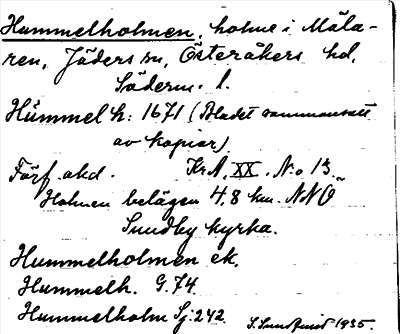 Hummelholmen, holme i Mäla-
ren, Jäders sn, Österåkers hd,
Söderm. l.
Hümmel h: 1671 (Bladet sammansatt
av kopior)
Förf. okd. KrA, XX. N:o 13.
Holmen belägen 4,8 km. NNO
Sundby kyrka.
Hummelholmen ek.
Hummelh. G. 74.
Hummelholm Sj: 242. S. Sundquist 1935.